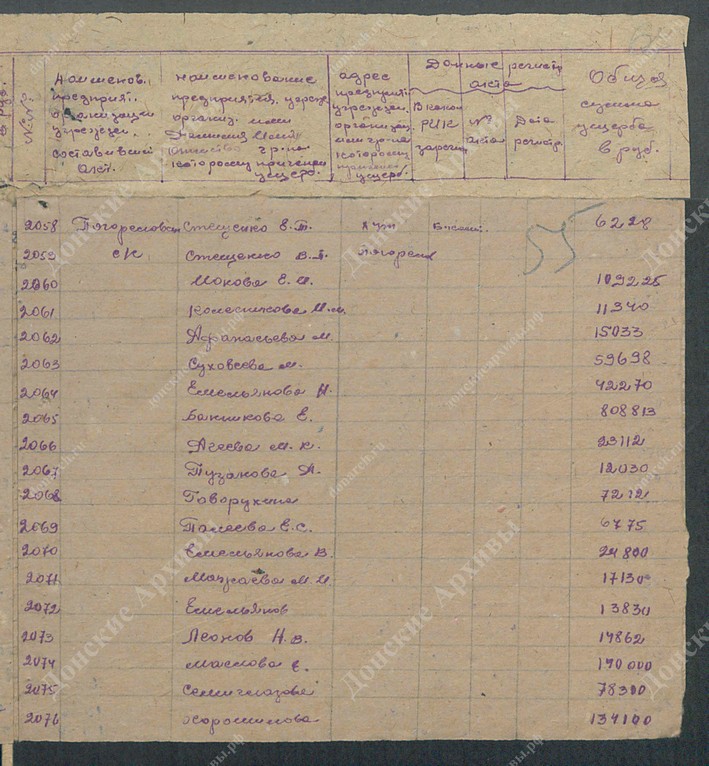 №№
Наименов. предприят. организации учрежден. составивший акт.
наименование предприятия, учрежд. организ. или гр-на которому причинен ущерб.
адрес предприят. учрежден. организац. или гр-на которому ущерб.
Данные регистр акта
РИК зарегис
№ акта
Дата регистр.
Общая сумма ущерба в руб.
2058 Стещенко Е.Т. 6228
55
2059 с/к Стещенко В.Т.
2060 Мокова Е.И. 109225
2061 Колесникова М.М. 11340
2062 Афанасьева М. 15033
2063 Суховеева М. 59698
2064 Емельянова Н. 42270
2065 Банникова Е. 808813
2066 Агеева М.К. 23112
2067 Пузанова А. 12030
2068 Говорухина 7212
2069 Е.С. 6775
2070 Емельянова В. 24800
2071 М.И. 17130
2072 Емельянов 13830
2073 Леонов Н.В. 14862
2074 Маслова Е. 190000
2075 Семиглазова 78300
2076 Хорошилова 134100
Донские Архивы
donarch.ru
донархив.рф